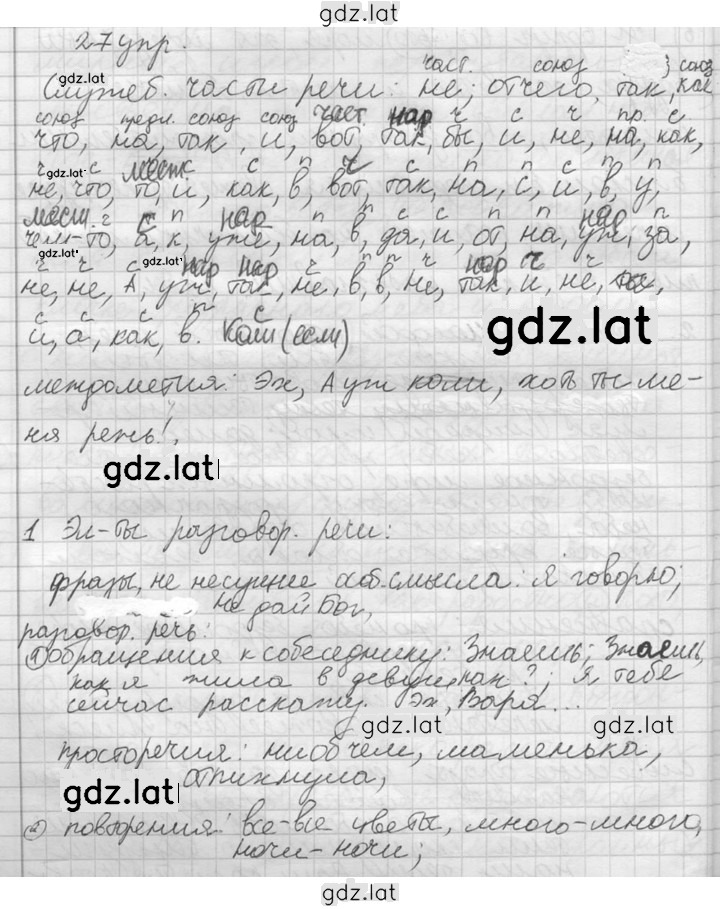 gdz.lat
27 упр.
част. союз } союз
gdz.lat
Служеб. части речи: не; отчего, так, как
союз предл. союз союз част. нар ч с ч пр. с
что, на, так, и, вот, так, бы, и, не, на, как,
gdz.lat
ч с мест. с п ч с п п с п п
не, что, то, и, как, в, вот, так, на, с, и, в, у,
мест. г с п нар п п с с п п нар п
чем-то, а, к, уже, на, в, да, и, от, на, уж, за,
gdz.lat gdz.lat
ч ч с нар нар ч п п ч нар ч ч
не, не, А, уж, так, не, в, в, не, так, и, не,
с с с п с
и, а, как, в. Коли (если)
gdz.lat
междометия: Эх, А уж коли, хоть ты ме-
ня режь!,
gdz.lat
1 Эл-ты разговор. речи:
фразы, не несущие смысла: Я говорю;
не дай Бог,
разговор. речь:
① обращения к собеседнику: Знаешь; Знаешь,
как я жила в девушках?; Я тебе
сейчас расскажу. Эх, Варя...
gdz.lat gdz.lat
просторечия: ни об чем, маменька,
gdz.lat отпихнула,
② повторения: все-все цветы, много-много,
ночи-ночи;
gdz.lat